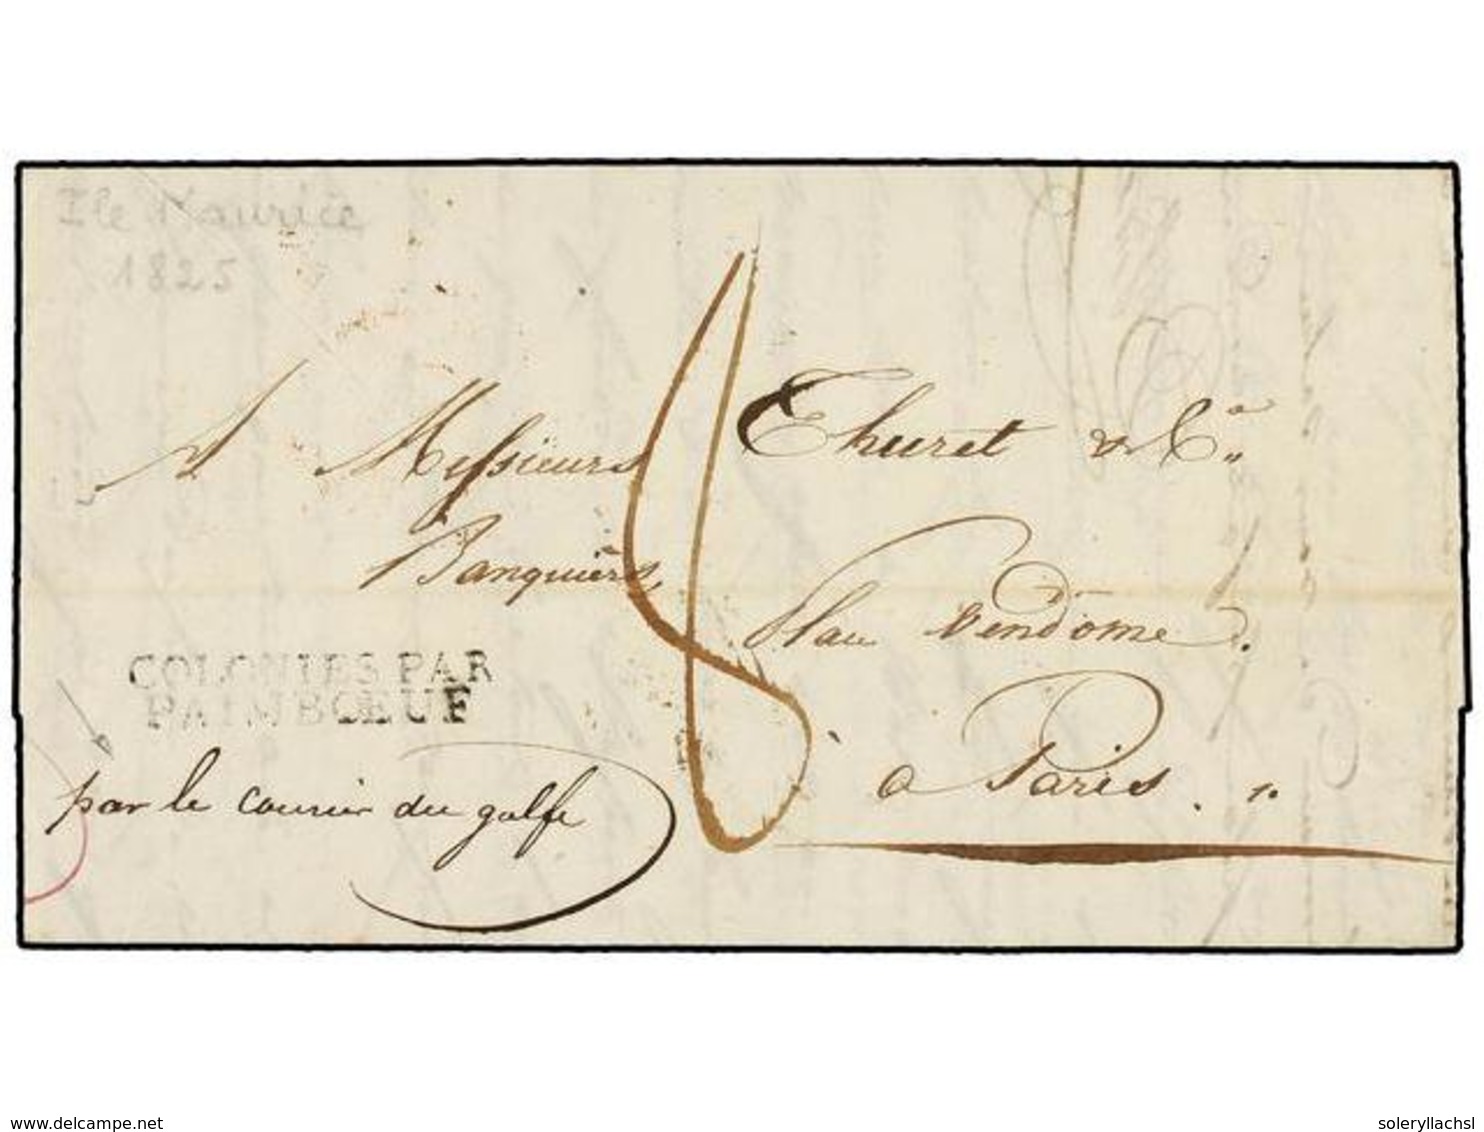 Ile Maurice
1825
A Messieurs Thuret & Cia
Banquiers, Place Vendôme.
COLONIES PAR
PAIMBŒUF
à Paris.
par le courier du golfe
8
delcampe.net
soleryllachsl